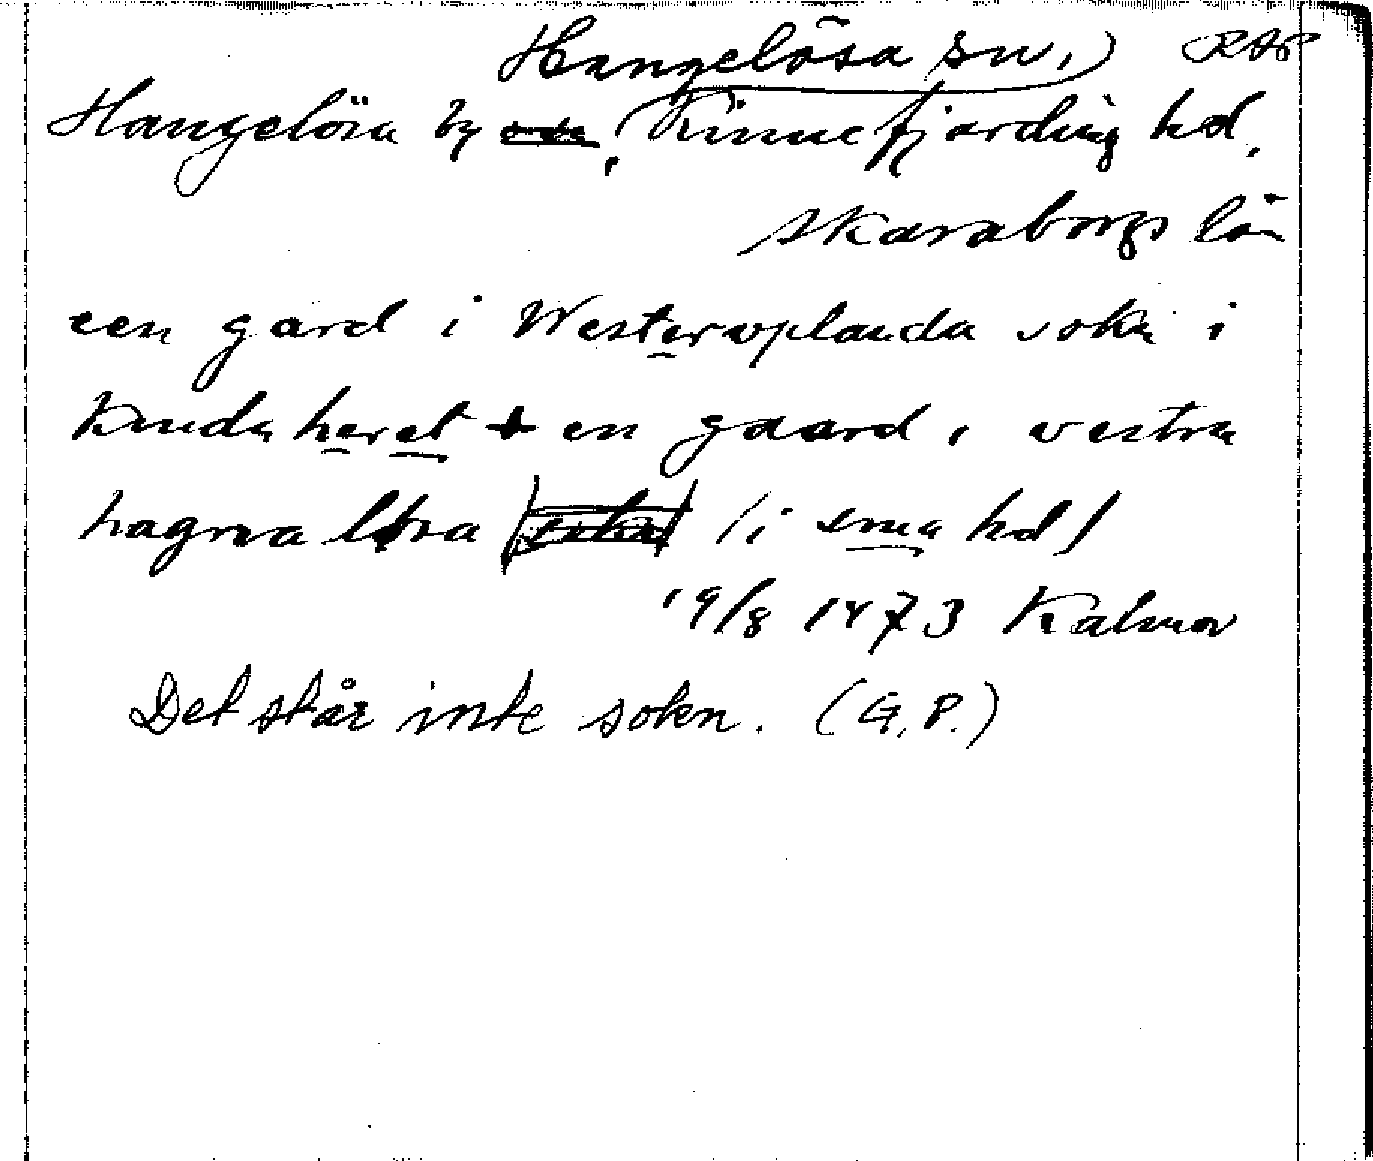 Hangelösa sn, RAP
Hangelösa by , Kinnefjärding hd,
Skaraborgs län
een gard i Westervplanda sokn i
Kinda heret en gaard i vestra
hagnalösa sokn (i sma hd)
19/8 1473 Kalmar
Det står inte sokn. (G.P.)